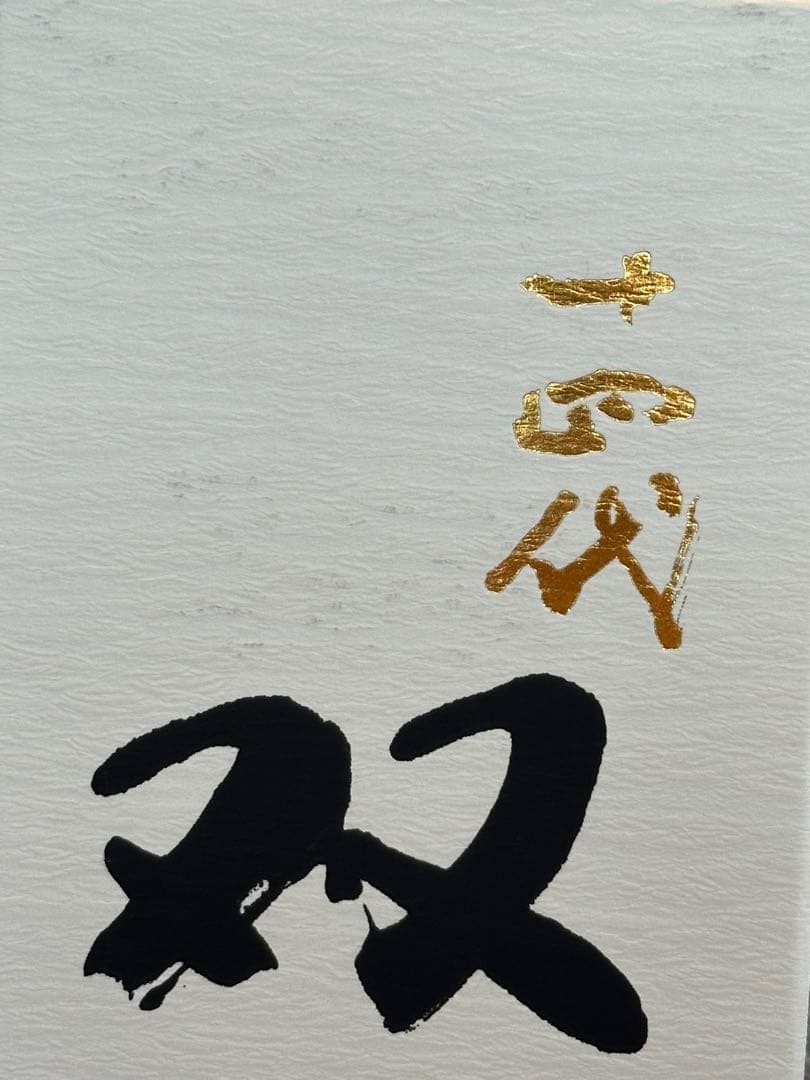 十四代
双